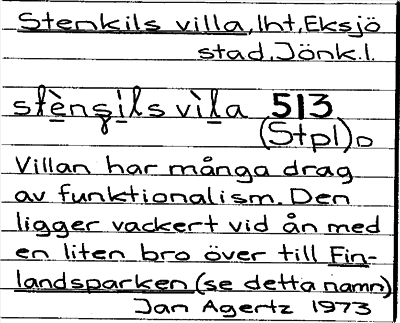 Stenkils villa, lht, Eksjö
stad, Jönk.l.
stèns̡ils vìla 513
(Stpl)o
Villan har många drag
av funktionalism. Den
ligger vackert vid ån med
en liten bro över till Fin-
landsparken (se detta namn)
Jan Agertz 1973